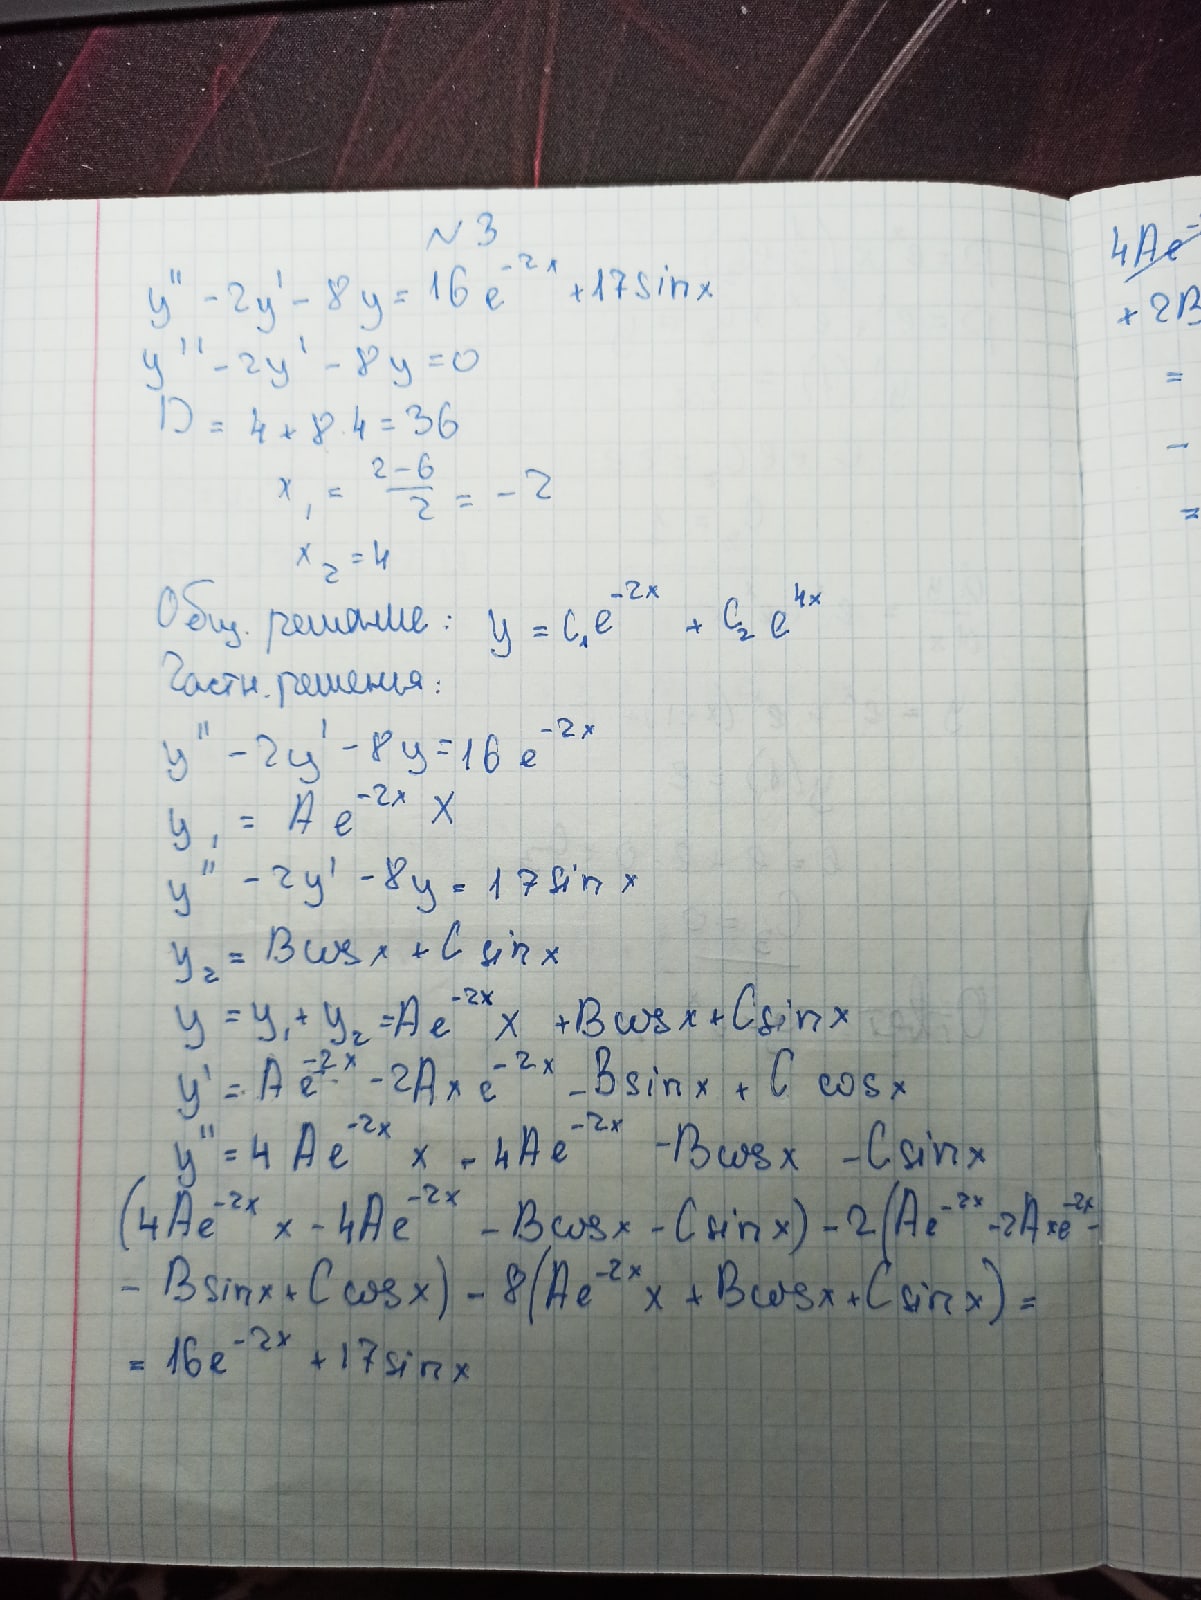 N 3
y'' - 2y' - 8y = 16e^{-2x} + 17sinx
y'' - 2y' - 8y = 0
D = 4 + 8·4 = 36
x₁ = \frac{2-6}{2} = -2
x₂ = 4
Общ. решение: y = C₁e^{-2x} + C₂e^{4x}
Частн. решения:
y'' - 2y' - 8y = 16e^{-2x}
y₁ = Ae^{-2x} x
y'' - 2y' - 8y = 17sinx
y₂ = Bcosx + Csinx
y = y₁ + y₂ = Ae^{-2x} x + Bcosx + Csinx
y' = Ae^{-2x} - 2Axe^{-2x} - Bsinx + C cosx
y'' = 4Ae^{-2x} x - 4Ae^{-2x} - Bcosx - Csinx
(4Ae^{-2x} x - 4Ae^{-2x} - Bcosx - Csinx) - 2(Ae^{-2x} - 2Axe^{-2x} -
- Bsinx + C cosx) - 8(Ae^{-2x} x + Bcosx + Csinx) =
= 16e^{-2x} + 17sinx
4Ae^-
+ 2B
=
-
=